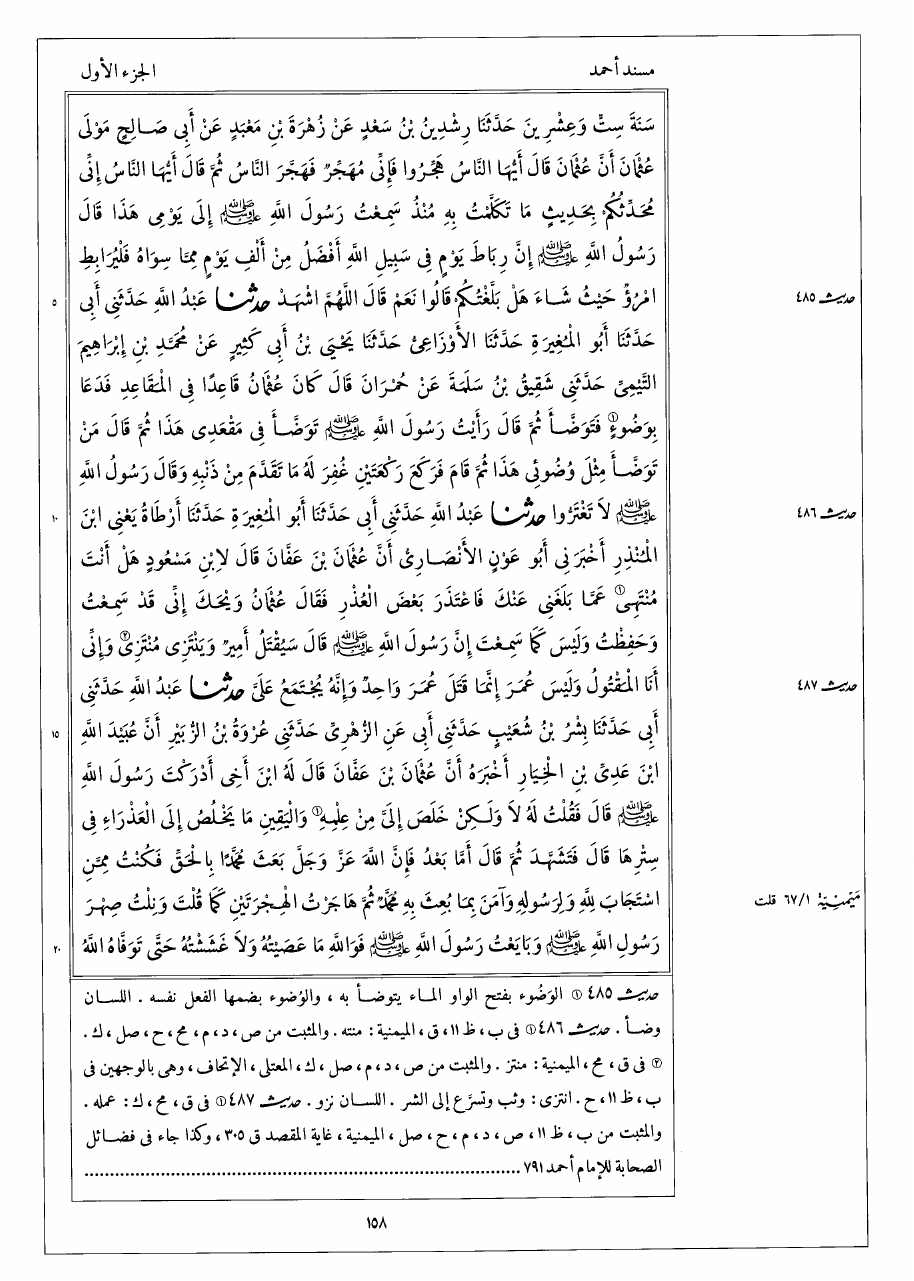 مسند أحمد
الجزء الأول
سَنَةَ سِتٍّ وَعِشْرِينَ حَدَّثَنَا رِشْدِينُ بْنُ سَعْدٍ عَنْ زُهْرَةَ بْنِ مَعْبَدٍ عَنْ أَبِي صَالِحٍ مَوْلَى
عُثْمَانَ أَنَّ عُثْمَانَ قَالَ أَيُّهَا النَّاسُ هَجِّرُوا فَإِنِّي مُهَجِّرٌ فَهَجَّرَ النَّاسُ ثُمَّ قَالَ أَيُّهَا النَّاسُ إِنِّي
مُحَدِّثُكُمْ بِحَدِيثٍ مَا تَكَلَّمْتُ بِهِ مُنْذُ سَمِعْتُ رَسُولَ اللَّهِ ﷺ إِلَى يَوْمِي هَذَا قَالَ
رَسُولُ اللَّهِ ﷺ إِنَّ رِبَاطَ يَوْمٍ فِي سَبِيلِ اللَّهِ أَفْضَلُ مِنْ أَلْفِ يَوْمٍ مِمَّا سِوَاهُ فَلْيُرَابِطِ
امْرُؤٌ حَيْثُ شَاءَ هَلْ بَلَّغْتُكُمْ قَالُوا نَعَمْ قَالَ اللَّهُمَّ اشْهَدْ حدثنا عَبْدُ اللَّهِ حَدَّثَنِي أَبِي
حديث ٤٨٥
٥
حَدَّثَنَا أَبُو الْمُغِيرَةِ حَدَّثَنَا الأَوْزَاعِيُّ حَدَّثَنَا يَحْيَى بْنُ أَبِي كَثِيرٍ عَنْ مُحَمَّدِ بْنِ إِبْرَاهِيمَ
التَّيْمِيِّ حَدَّثَنِي شَقِيقُ بْنُ سَلَمَةَ عَنْ حُمْرَانَ قَالَ كَانَ عُثْمَانُ قَاعِدًا فِي الْمَقَاعِدِ فَدَعَا
بِوَضُوءٍ① فَتَوَضَّأَ ثُمَّ قَالَ رَأَيْتُ رَسُولَ اللَّهِ ﷺ تَوَضَّأَ فِي مَقْعَدِي هَذَا ثُمَّ قَالَ مَنْ
تَوَضَّأَ مِثْلَ وُضُوئِي هَذَا ثُمَّ قَامَ فَرَكَعَ رَكْعَتَيْنِ غُفِرَ لَهُ مَا تَقَدَّمَ مِنْ ذَنْبِهِ وَقَالَ رَسُولُ اللَّهِ
ﷺ لاَ تَغْتَرُّوا حدثنا عَبْدُ اللَّهِ حَدَّثَنِي أَبِي حَدَّثَنَا أَبُو الْمُغِيرَةِ حَدَّثَنَا أَرْطَاةُ يَعْنِي ابْنَ
حديث ٤٨٦
١٠
الْمُنْذِرِ أَخْبَرَنِي أَبُو عَوْنٍ الأَنْصَارِيُّ أَنَّ عُثْمَانَ بْنَ عَفَّانَ قَالَ لاِبْنِ مَسْعُودٍ هَلْ أَنْتَ
مُنْتَهِي① عَمَّا بَلَغَنِي عَنْكَ فَاعْتَذَرَ بَعْضَ الْعُذْرِ فَقَالَ عُثْمَانُ وَيْحَكَ إِنِّي قَدْ سَمِعْتُ
وَحَفِظْتُ وَلَيْسَ كَمَا سَمِعْتَ إِنَّ رَسُولَ اللَّهِ ﷺ قَالَ سَيُقْتَلُ أَمِيرٌ وَيَنْتَزِي مُنْتَزِي② وَإِنِّي
أَنَا الْمَقْتُولُ وَلَيْسَ عُمَرَ إِنَّمَا قَتَلَ عُمَرَ وَاحِدٌ وَإِنَّهُ يُجْتَمَعُ عَلَيَّ حدثنا عَبْدُ اللَّهِ حَدَّثَنِي
حديث ٤٨٧
أَبِي حَدَّثَنَا بِشْرُ بْنُ شُعَيْبٍ حَدَّثَنِي أَبِي عَنِ الزُّهْرِيِّ حَدَّثَنِي عُرْوَةُ بْنُ الزُّبَيْرِ أَنَّ عُبَيْدَ اللَّهِ
١٥
ابْنَ عَدِيِّ بْنِ الْخِيَارِ أَخْبَرَهُ أَنَّ عُثْمَانَ بْنَ عَفَّانَ قَالَ لَهُ ابْنَ أَخِي أَدْرَكْتَ رَسُولَ اللَّهِ
ﷺ قَالَ فَقُلْتُ لَهُ لاَ وَلَكِنْ خَلَصَ إِلَيَّ مِنْ عِلْمِهِ① وَالْيَقِينِ مَا يَخْلُصُ إِلَى الْعَذْرَاءِ فِي
سِتْرِهَا قَالَ فَتَشَهَّدَ ثُمَّ قَالَ أَمَّا بَعْدُ فَإِنَّ اللَّهَ عَزَّ وَجَلَّ بَعَثَ مُحَمَّدًا بِالْحَقِّ فَكُنْتُ مِمَّنِ
اسْتَجَابَ لِلَّهِ وَلِرَسُولِهِ وَآمَنَ بِمَا بُعِثَ بِهِ مُحَمَّدٌ ثُمَّ هَاجَرْتُ الْهِجْرَتَيْنِ كَمَا قُلْتَ وَنِلْتُ صِهْرَ
مَيْمَنِيَّة ٦٧/١ قلت
رَسُولِ اللَّهِ ﷺ وَبَايَعْتُ رَسُولَ اللَّهِ ﷺ فَوَاللَّهِ مَا عَصَيْتُهُ وَلاَ غَشَشْتُهُ حَتَّى تَوَفَّاهُ اللَّهُ
٢٠
حديث ٤٨٥ ① الوَضُوء بفتح الواو الماء يتوضأ به ، والوُضوء بضمها الفعل نفسه . اللسان
وضأ . حديث ٤٨٦ ① في ب ، ظ ١١ ، ق ، الميمنية : منته . والمثبت من ص ، د ، م ، مح ، ح ، صل ، ك .
② في ق ، مح ، الميمنية : منتز . والمثبت من ص ، د ، م ، صل ، ك ، المعتلي ، الإتحاف ، وهي بالوجهين في
ب ، ظ ١١ ، ح . انتزى : وثب وتسرَّع إلى الشر . اللسان نزو . حديث ٤٨٧ ① في ق ، مح ، ك : عمله .
والمثبت من ب ، ظ ١١ ، ص ، د ، م ، ح ، صل ، الميمنية ، غاية المقصد ق ٣٠٥ ، وكذا جاء في فضائل
الصحابة للإمام أحمد ٧٩١ ...............
١٥٨